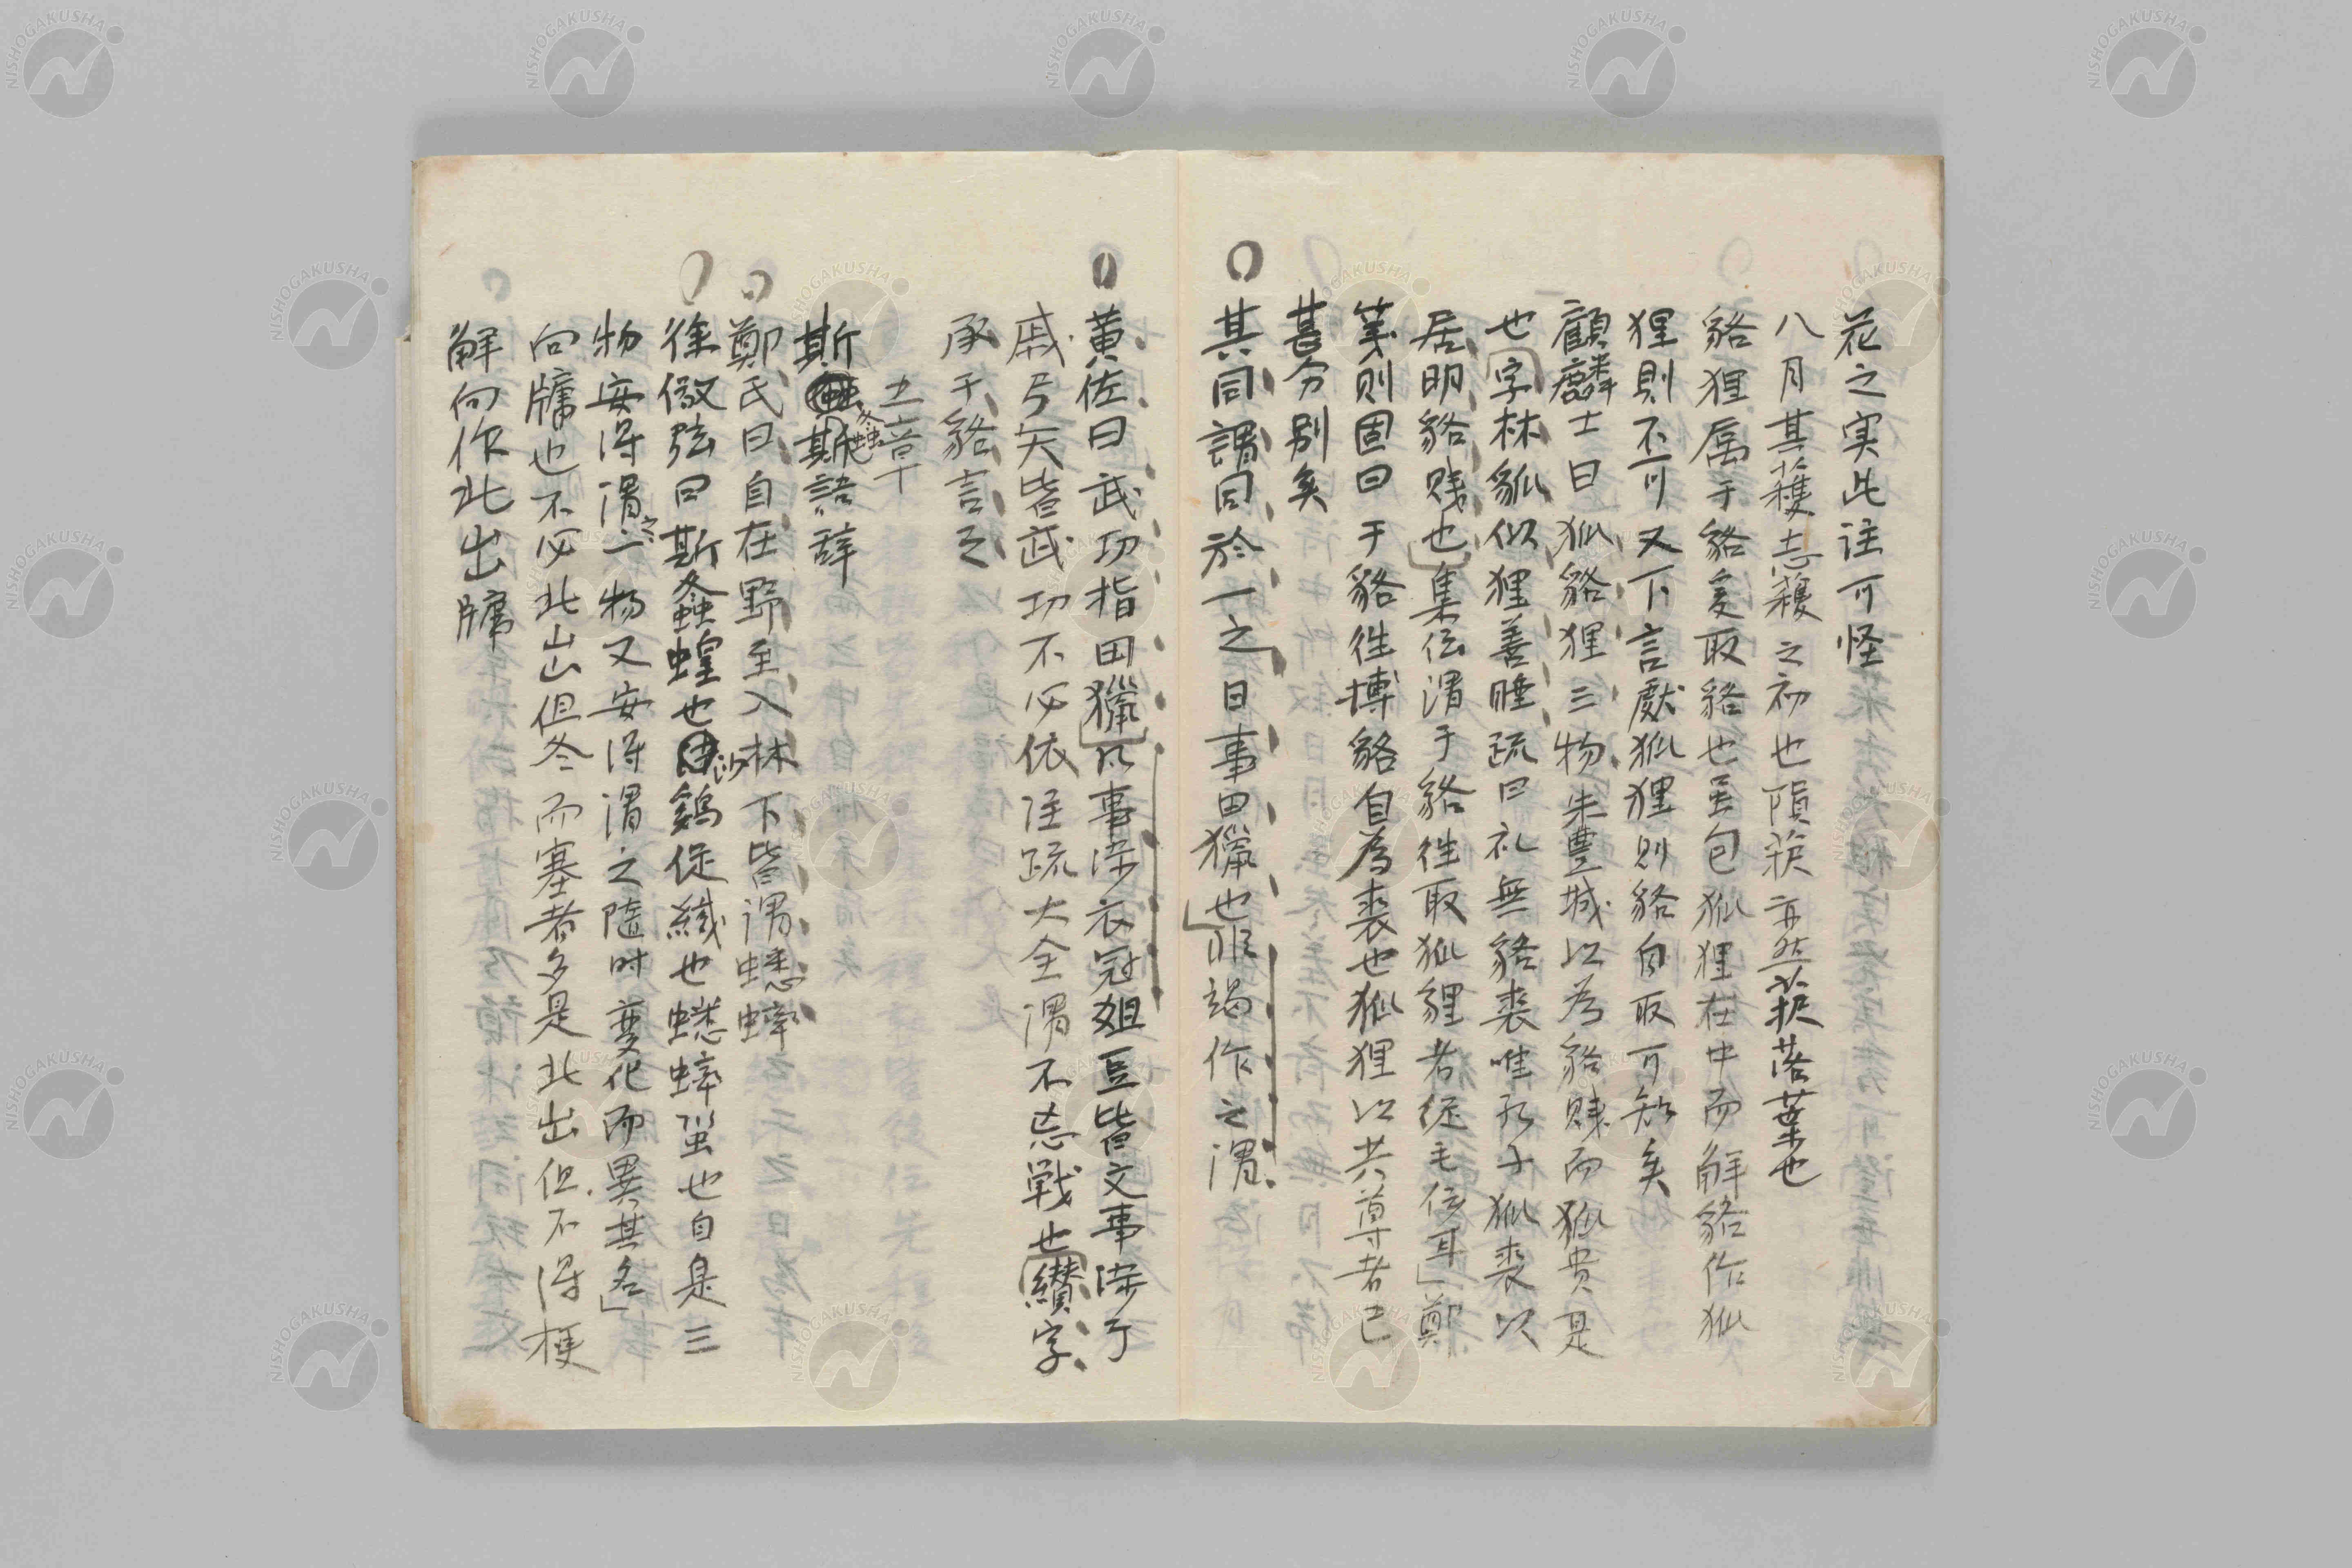 花之実此注可怪
八月其穫志穫之初也隕蘀亦然蘀落葉也
貉狸属于貉爰取貉也虽包狐狸在中而解貉作狐
狸則不可又下言厭狐狸則貉自取可知矣
顧麟士曰狐貉狸三物朱豊城以為貉賤而狐貴是
也字林貉似狸善睡疏曰礼無貉裘唯孔子狐裘以
居明貉賤也集伝謂于貉往取狐貍者従毛伝耳」鄭
箋則固曰于貉往搏貉自為裘也狐狸以共尊者已
甚分別矣
〇其同謂同於一之日事田獵也」非竭作之謂
〇黄佐曰武功指田獵凡事渉衣冠俎豆皆文事渉于
戚弓矢皆武功不必依注疏大全謂不忘戦也纉字
承于貉言之
五章
斯螽斯語辞
〇鄭氏曰自在野至入林下皆謂蟋蟀
〇徐儆弦曰斯螽蝗也沙鷄促織也蟋蟀蛩也自是三
物安得謂之一物又安得謂之随時変化而異其名」
向牖也不必北出但冬而塞者多是北出但不得梗
解向作北出牖